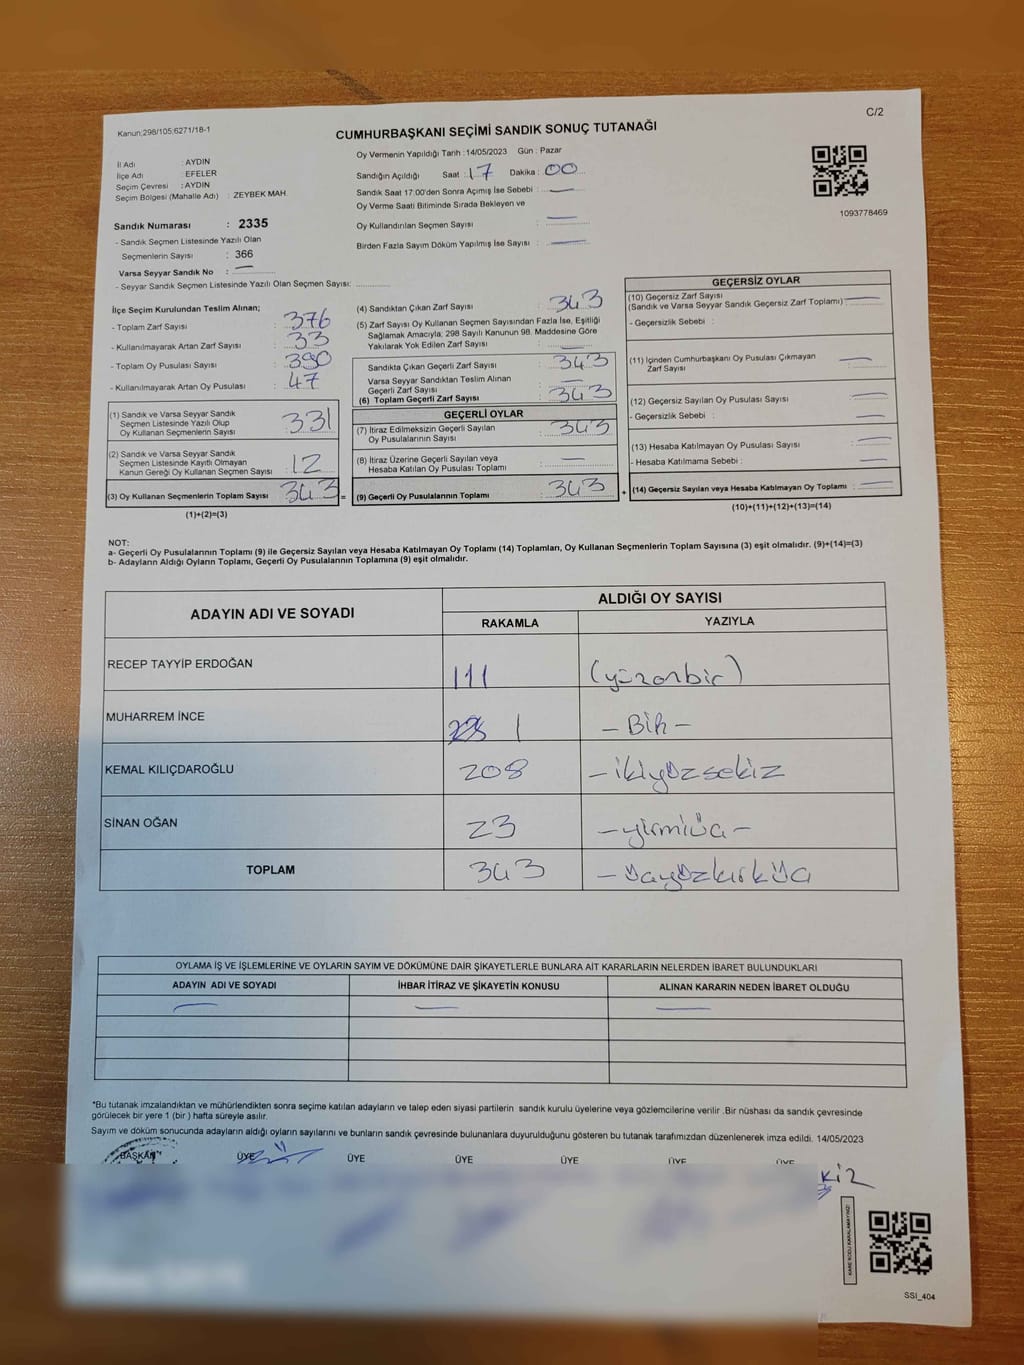 C/2
Kanun;298/105;6271/18-1
CUMHURBAŞKANI SEÇİMİ SANDIK SONUÇ TUTANAĞI
İl Adı : AYDIN
İlçe Adı : EFELER
Seçim Çevresi : AYDIN
Seçim Bölgesi (Mahalle Adı) : ZEYBEK MAH.
Oy Vermenin Yapıldığı Tarih :14/05/2023 Gün : Pazar
Sandığın Açıldığı Saat : 17 Dakika : 00
Sandık Saat 17:00'den Sonra Açımış İse Sebebi : —
Oy Verme Saati Bitiminde Sırada Bekleyen ve
Oy Kullandırılan Seçmen Sayısı : —
Birden Fazla Sayım Döküm Yapılmış İse Sayısı : —
1093778469
Sandık Numarası : 2335
- Sandık Seçmen Listesinde Yazılı Olan
Seçmenlerin Sayısı : 366
Varsa Seyyar Sandık No : —
- Seyyar Sandık Seçmen Listesinde Yazılı Olan Seçmen Sayısı: ..............
İlçe Seçim Kurulundan Teslim Alınan;
- Toplam Zarf Sayısı : 376
- Kullanılmayarak Artan Zarf Sayısı : 33
- Toplam Oy Pusulası Sayısı : 390
- Kullanılmayarak Artan Oy Pusulası : 47
(1) Sandık ve Varsa Seyyar Sandık
Seçmen Listesinde Yazılı Olup
Oy Kullanan Seçmenlerin Sayısı : 331
(2) Sandık ve Varsa Seyyar Sandık
Seçmen Listesinde Kayıtlı Olmayan
Kanun Gereği Oy Kullanan Seçmen Sayısı : 12
(3) Oy Kullanan Seçmenlerin Toplam Sayısı : 343 =
(1)+(2)=(3)
(4) Sandıktan Çıkan Zarf Sayısı : 343
(5) Zarf Sayısı Oy Kullanan Seçmen Sayısından Fazla İse, Eşitliği
Sağlamak Amacıyla; 298 Sayılı Kanunun 98. Maddesine Göre
Yakılarak Yok Edilen Zarf Sayısı : —
Sandıkta Çıkan Geçerli Zarf Sayısı : 343
Varsa Seyyar Sandıktan Teslim Alınan
Geçerli Zarf Sayısı : —
(6) Toplam Geçerli Zarf Sayısı : 343
GEÇERLİ OYLAR
(7) İtiraz Edilmeksizin Geçerli Sayılan
Oy Pusulalarının Sayısı : 343
(8) İtiraz Üzerine Geçerli Sayılan veya
Hesaba Katılan Oy Pusulası Toplamı : —
(9) Geçerli Oy Pusulalarının Toplamı : 343 +
GEÇERSİZ OYLAR
(10) Geçersiz Zarf Sayısı
(Sandık ve Varsa Seyyar Sandık Geçersiz Zarf Toplamı) : —
- Geçersizlik Sebebi :
(11) İçinden Cumhurbaşkanı Oy Pusulası Çıkmayan
Zarf Sayısı : —
(12) Geçersiz Sayılan Oy Pusulası Sayısı : —
- Geçersizlik Sebebi : —
(13) Hesaba Katılmayan Oy Pusulası Sayısı : —
- Hesaba Katılmama Sebebi : —
(14) Geçersiz Sayılan veya Hesaba Katılmayan Oy Toplamı : —
(10)+(11)+(12)+(13)=(14)
NOT:
a- Geçerli Oy Pusulalarının Toplamı (9) ile Geçersiz Sayılan veya Hesaba Katılmayan Oy Toplamı (14) Toplamları, Oy Kullanan Seçmenlerin Toplam Sayısına (3) eşit olmalıdır. (9)+(14)=(3)
b- Adayların Aldığı Oyların Toplamı, Geçerli Oy Pusulalarının Toplamına (9) eşit olmalıdır.
ADAYIN ADI VE SOYADI
ALDIĞI OY SAYISI
RAKAMLA YAZIYLA
RECEP TAYYİP ERDOĞAN 111 (yüzonbir)
MUHARREM İNCE 1 – Bir –
KEMAL KILIÇDAROĞLU 208 – ikiyüzsekiz
SİNAN OĞAN 23 – yirmiüç –
TOPLAM 343 – üçyüzkırküç
OYLAMA İŞ VE İŞLEMLERİNE VE OYLARIN SAYIM VE DÖKÜMÜNE DAİR ŞİKAYETLERLE BUNLARA AİT KARARLARIN NELERDEN İBARET BULUNDUKLARI
ADAYIN ADI VE SOYADI İHBAR İTİRAZ VE ŞİKAYETİN KONUSU ALINAN KARARIN NEDEN İBARET OLDUĞU
— — —
*Bu tutanak imzalandıktan ve mühürlendikten sonra seçime katılan adayların ve talep eden siyasi partilerin sandık kurulu üyelerine veya gözlemcilerine verilir .Bir nüshası da sandık çevresinde
görülecek bir yere 1 (bir ) hafta süreyle asılır.
Sayım ve döküm sonucunda adayların aldığı oyların sayılarını ve bunların sandık çevresinde bulunanlara duyurulduğunu gösteren bu tutanak tarafımızdan düzenlenerek imza edildi. 14/05/2023
BAŞKAN ÜYE ÜYE ÜYE ÜYE ÜYE ÜYE
KARE KODU KARALAMAYINIZ!
SSI_404